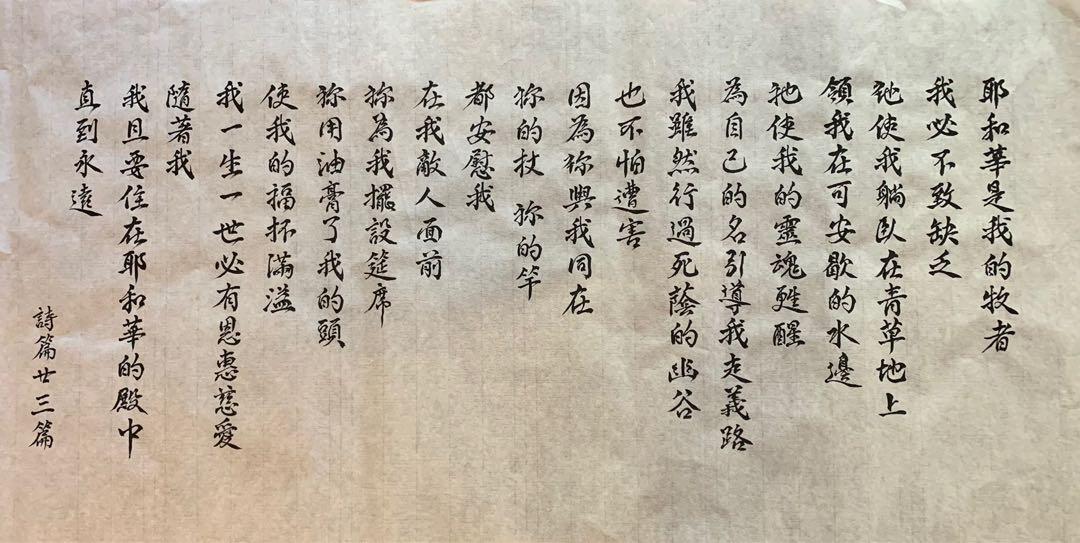 耶和華是我的牧者
我必不致缺乏
祂使我躺臥在青草地上
領我在可安歇的水邊
祂使我的靈魂甦醒
為自己的名引導我走義路
我雖然行過死蔭的幽谷
也不怕遭害
因為祢與我同在
祢的杖 祢的竿
都安慰我
在我敵人面前
祢為我擺設筵席
祢用油膏了我的頭
使我的福杯滿溢
我一生一世必有恩惠慈愛
隨著我
我且要住在耶和華的殿中
直到永遠
詩篇廿三篇